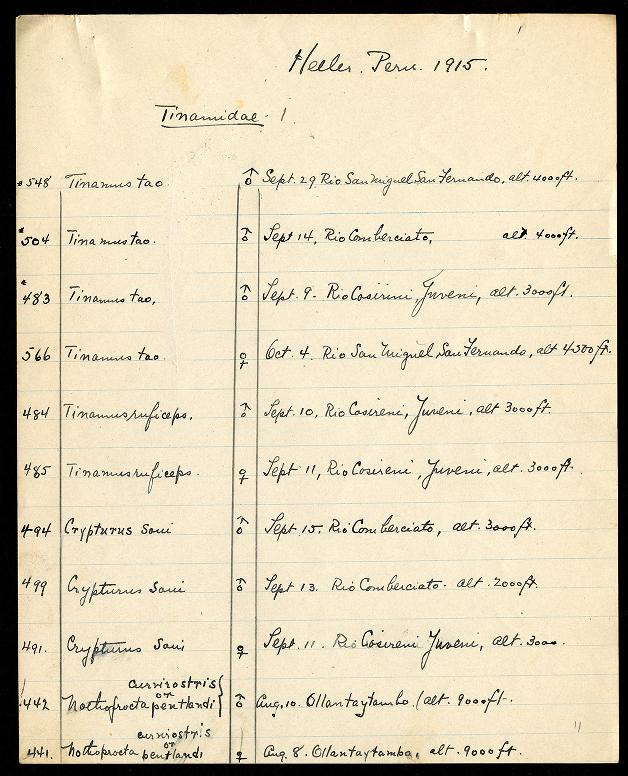 Heller. Peru. 1915.
Tinamidae. 1
*548 Tinamus tao. ♂ Sept. 29 Rio San Miguel San Fernando, alt. 4000ft.
*504 Tinamus tao. ♂ Sept 14, Rio Comberciato, alt. 4000ft.
*483 Tinamus tao, ♂ Sept. 9. Rio Cosireni, Juveni, alt. 3000ft.
566 Tinamus tao. ♀ Oct. 4. Rio San Miguel, San Fernando, alt 4500ft.
484 Tinamus ruficeps. ♂ Sept. 10, Rio Cosireni, Juveni, alt 3000ft.
485 Tinamus ruficeps. ♀ Sept 11, Rio Cosireni, Juveni, alt. 3000ft.
494 Crypturus Soui ♂ Sept. 15. Rio Comberciato, alt. 3000ft.
499 Crypturus Soui ♂ Sept 13. Rio Comberciato. alt. 2000ft.
491. Crypturus Soui ♀ Sept. 11. Rio Cosireni Juveni, alt. 3000.
curvirostris
or
442 Nothoprocta pentlandi } ♂ Aug. 10. Ollantaytambo. alt. 9000ft.
curvirostris
or
441. Nothoprocta pentlandi ♀ Aug. 8. Ollantaytambo, alt. 9000ft.